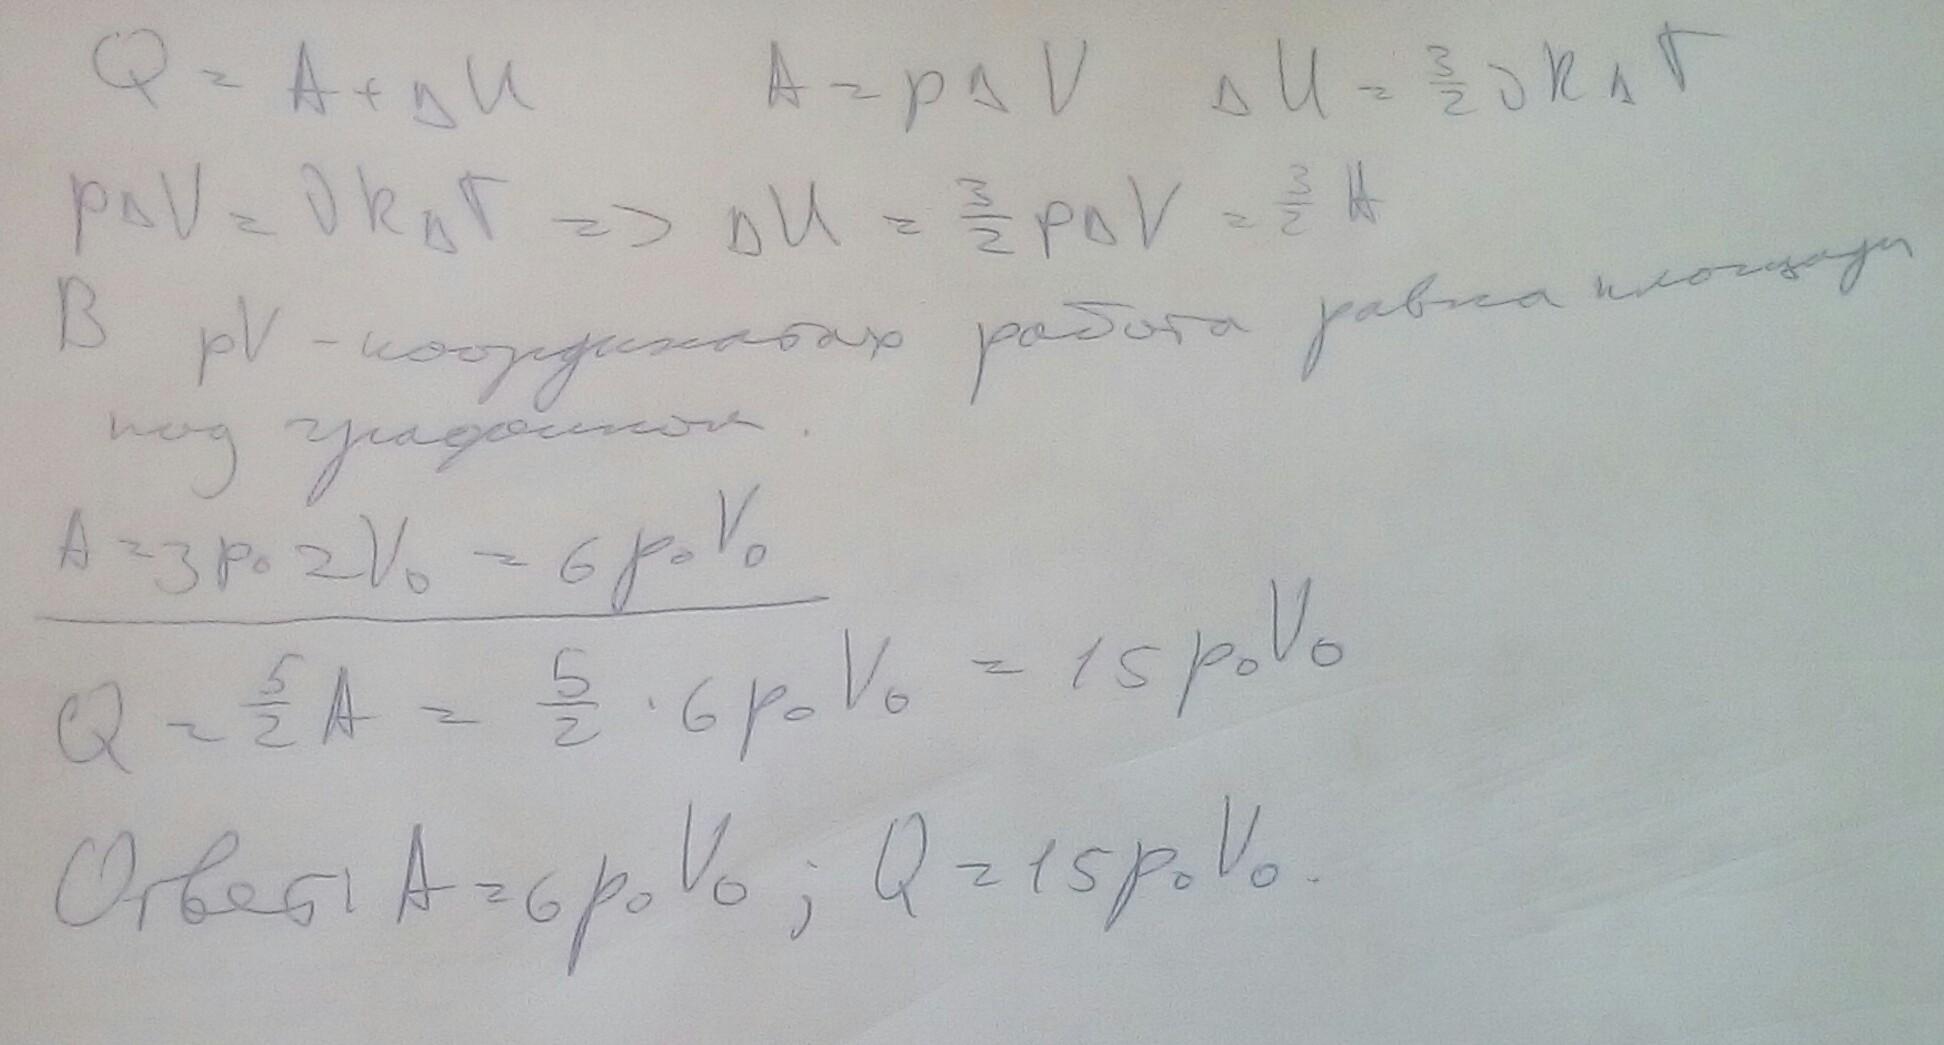 Q = A + ΔU A = pΔV ΔU = 3/2 νRΔT
pΔV = νRΔT => ΔU = 3/2 pΔV = 3/2 A
В pV - координатах работа равна площади
под графиком.
A = 3p₀ 2V₀ = 6p₀V₀
Q = 5/2 A = 5/2 · 6p₀V₀ = 15p₀V₀
Ответ: A = 6p₀V₀; Q = 15p₀V₀.